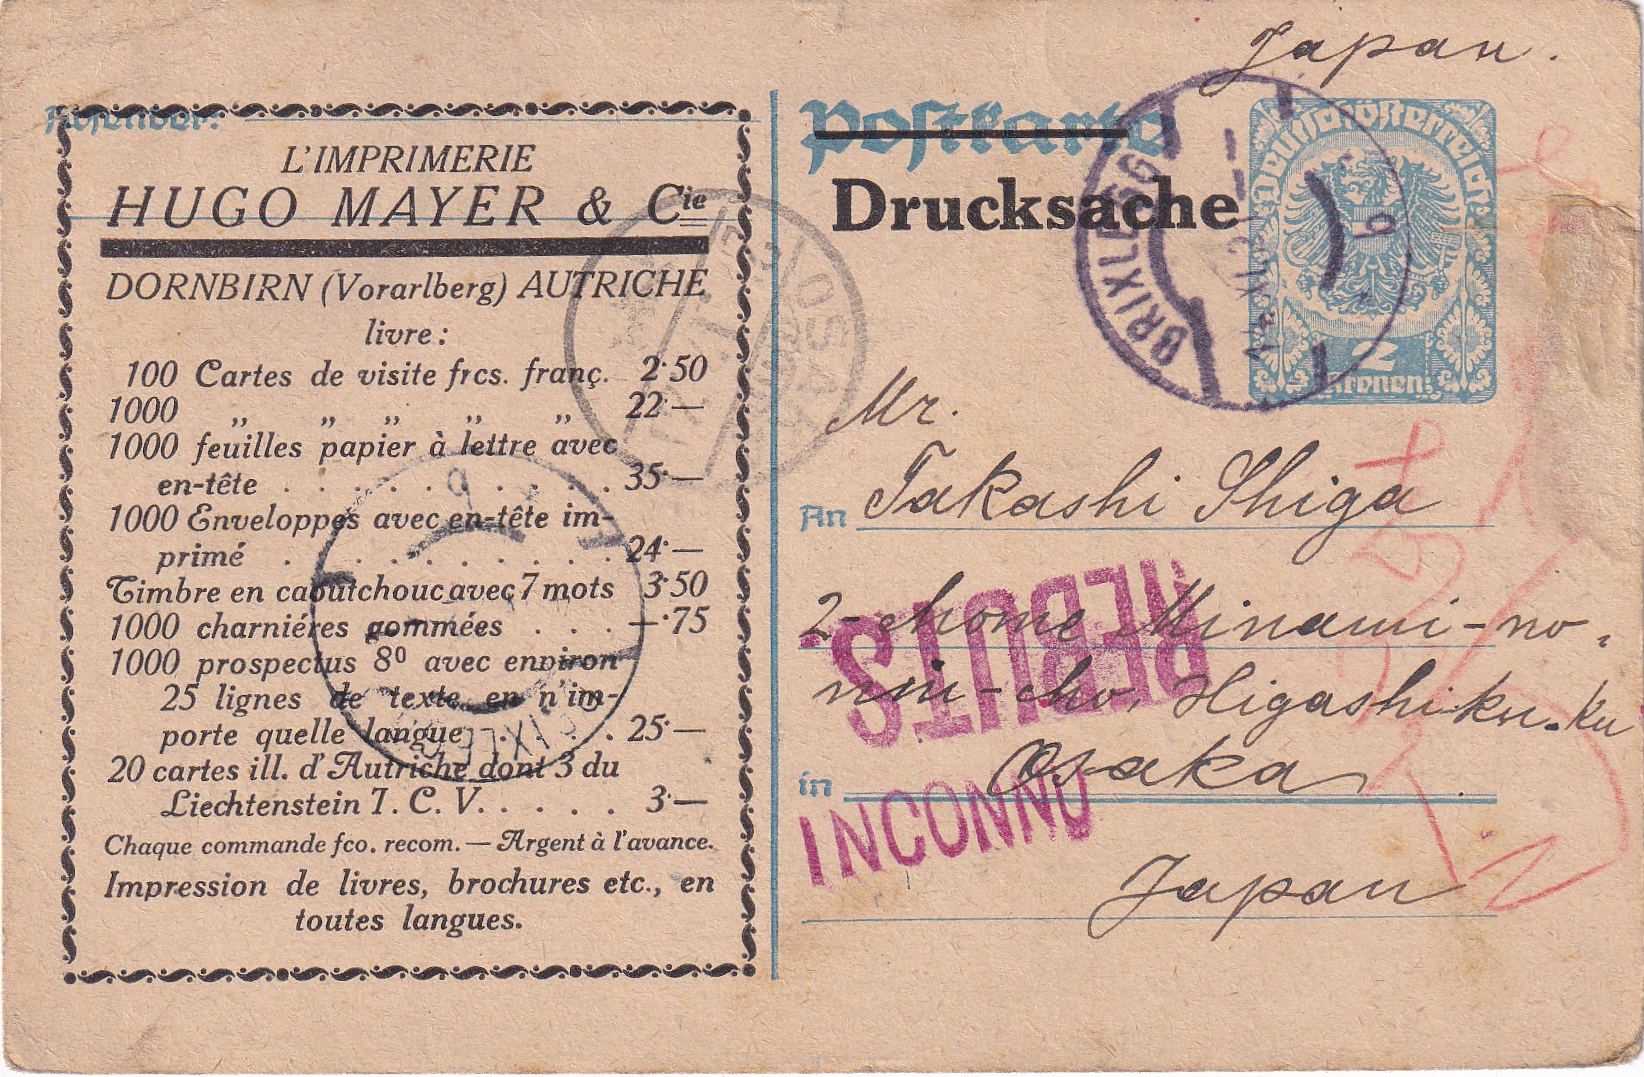 Japan.
Absender:
L'IMPRIMERIE
HUGO MAYER & Cie
DORNBIRN (Vorarlberg) AUTRICHE
livre:
100 Cartes de visite frcs. franç. 2·50
1000 „ „ „ „ „ 22·—
1000 feuilles papier à lettre avec
en-tête . . . . . . . . . . 35·—
1000 Enveloppes avec en-tête im-
primé . . . . . . . . . . 24·—
Timbre en caoutchouc avec 7 mots 3·50
1000 charniéres gommées . . . —·75
1000 prospectus 8⁰ avec environ
25 lignes de texte en n'im-
porte quelle langue . . . . 25·—
20 cartes ill. d'Autriche dont 3 du
Liechtenstein I. C. V. . . . . . 3·—
Chaque commande fco. recom. — Argent à l'avance.
Impression de livres, brochures etc., en
toutes langues.
Postkarte
Drucksache
Deutschösterreich
2
Kronen
BRIXLEGG
b
OSAKA
BRIXLEGG
b
Mr.
An Takashi Shiga
2-chome Minami-no-
nin-cho, Higashiku-Ku
in Osaka
Japan
REBUTS
INCONNU